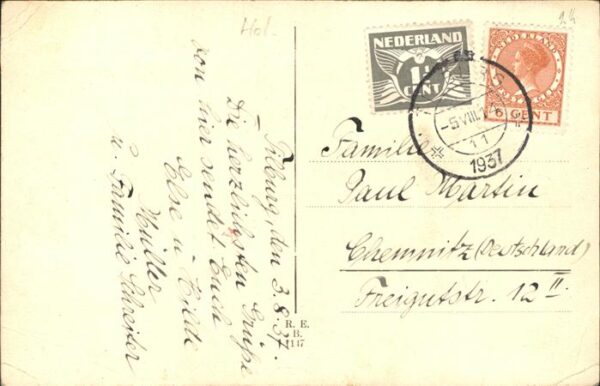 Hol.
Tilburg, den 3.8.37.
Die herzlichsten Grüße
von hier sendet Euch
Else u. Hilde
Müller
u. Familie Schreiter
R. E.
B.
NEDERLAND
CENT
NEDERLAND
6 CENT
-5.VIII.
11
1937
Familie
Paul Martin
Chemnitz (Deutschland)
Freigutstr. 12 II.